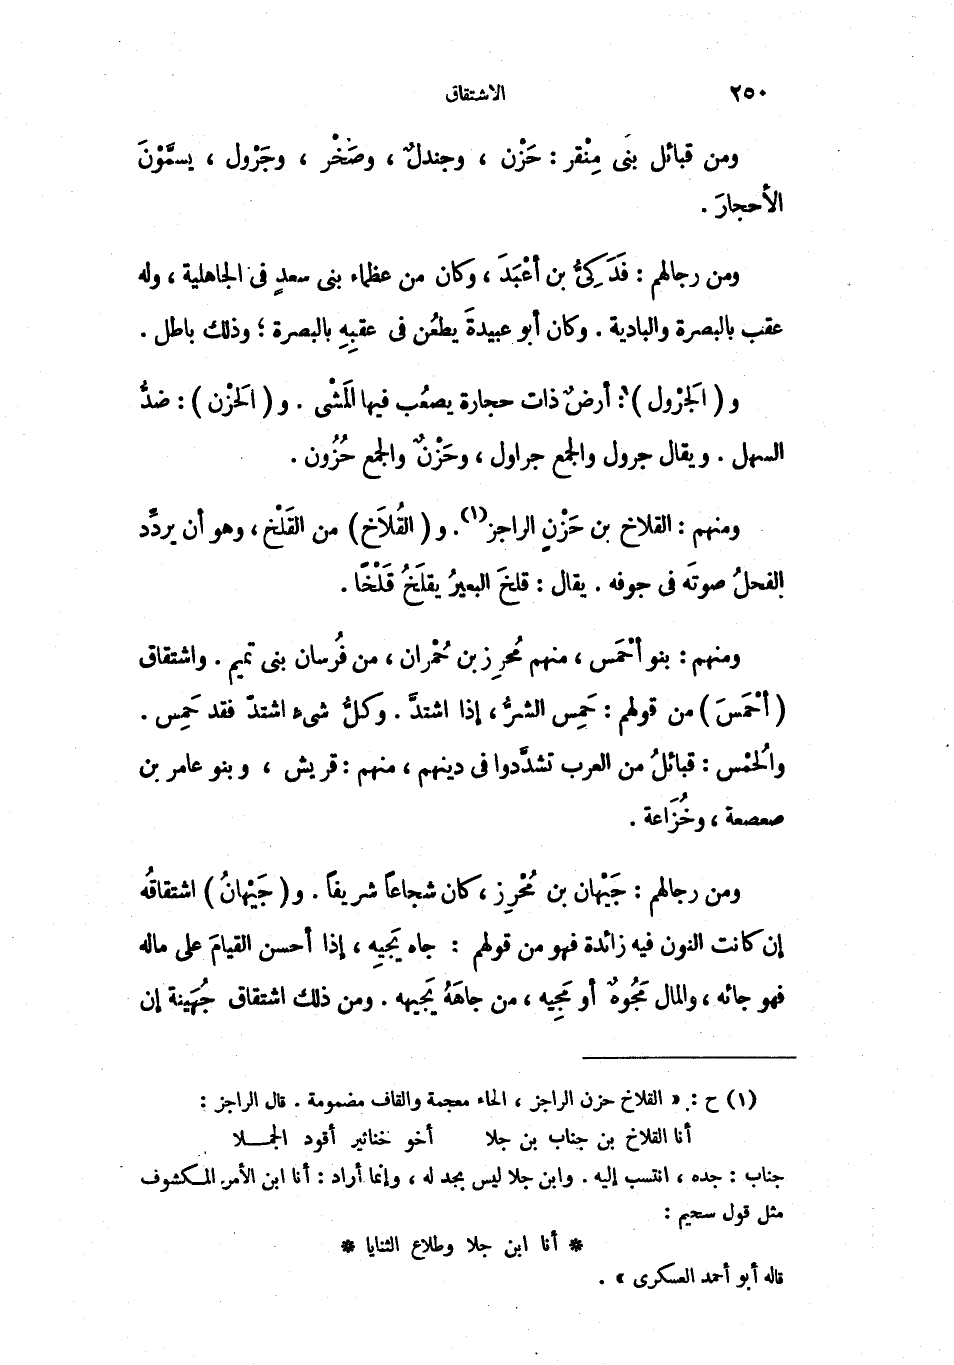 ٢٥٠ الاشتقاق
ومن قبائل بنى مِنْقر : حَزْن ، وجندلٌ ، وصَخْر ، وجَرْول ، يسمَّوْنَ
الأحجارَ .
ومن رجالهم : فَدَكِىُّ بن أعْبَدَ ، وكان من عظماء بنى سعدٍ فى الجاهلية ، وله
عقب بالبصرة والبادية . وكان أبو عبيدةَ يطعُن فى عقبِهِ بالبصرة ؛ وذلك باطل .
و ( الجَرْول ) : أرضٌ ذات حجارة يصعُب فيها المَشْى . و ( الحَزْن ) : ضدُّ
السهل . ويقال جرول والجمع جراول ، وحَزْنٌ والجمع حُزُون .
ومنهم : القلاخ بن حَزْنٍ الراجز(١) . و ( القُلاَخ ) من القَلْخ ، وهو أن يردِّد
الفحلُ صوتَه فى جوفه . يقال : قلخَ البعيرُ يقلَخُ قَلْخًا .
ومنهم : بنو أحْمَس ، منهم مُحرِز بن حُمْران ، من فُرسان بنى تميم . واشتقاق
( أحْمَسَ ) من قولهم : حَمِس الشرُّ ، إذا اشتدَّ . وكلُّ شىء اشتدّ فقد حَمِس .
والحُمْس : قبائلُ من العرب تشدَّدوا فى دينهم ، منهم : قريش ، وبنو عامر بن
صعصعة ، وخُزَاعة .
ومن رجالهم : جَيْهان بن مُحْرِز ، كان شجاعاً شريفاً . و ( جَيْهانُ ) اشتقاقُه
إن كانت النون فيه زائدة فهو من قولهم : جاه يَجيِه ، إذا أحسن القيامَ على ماله
فهو جائه ، والمال مَجُوهٌ أو مَجِيه ، من جاهَهُ يَجيهه . ومن ذلك اشتقاق جُهَينة إن
(١) ح : « القلاخ حزن الراجز ، الخاء معجمة والقاف مضمومة . قال الراجز :
أنا القلاخ بن جناب بن جلا أخو خناثير أقود الجمـــلا
جناب : جده ، انتسب إليه . وابن جلا ليس بجد له ، وإنما أراد : أنا ابن الأمر المكشوف
مثل قول سحيم :
* أنا ابن جلا وطلاع الثنايا *
قاله أبو أحمد العسكرى » .